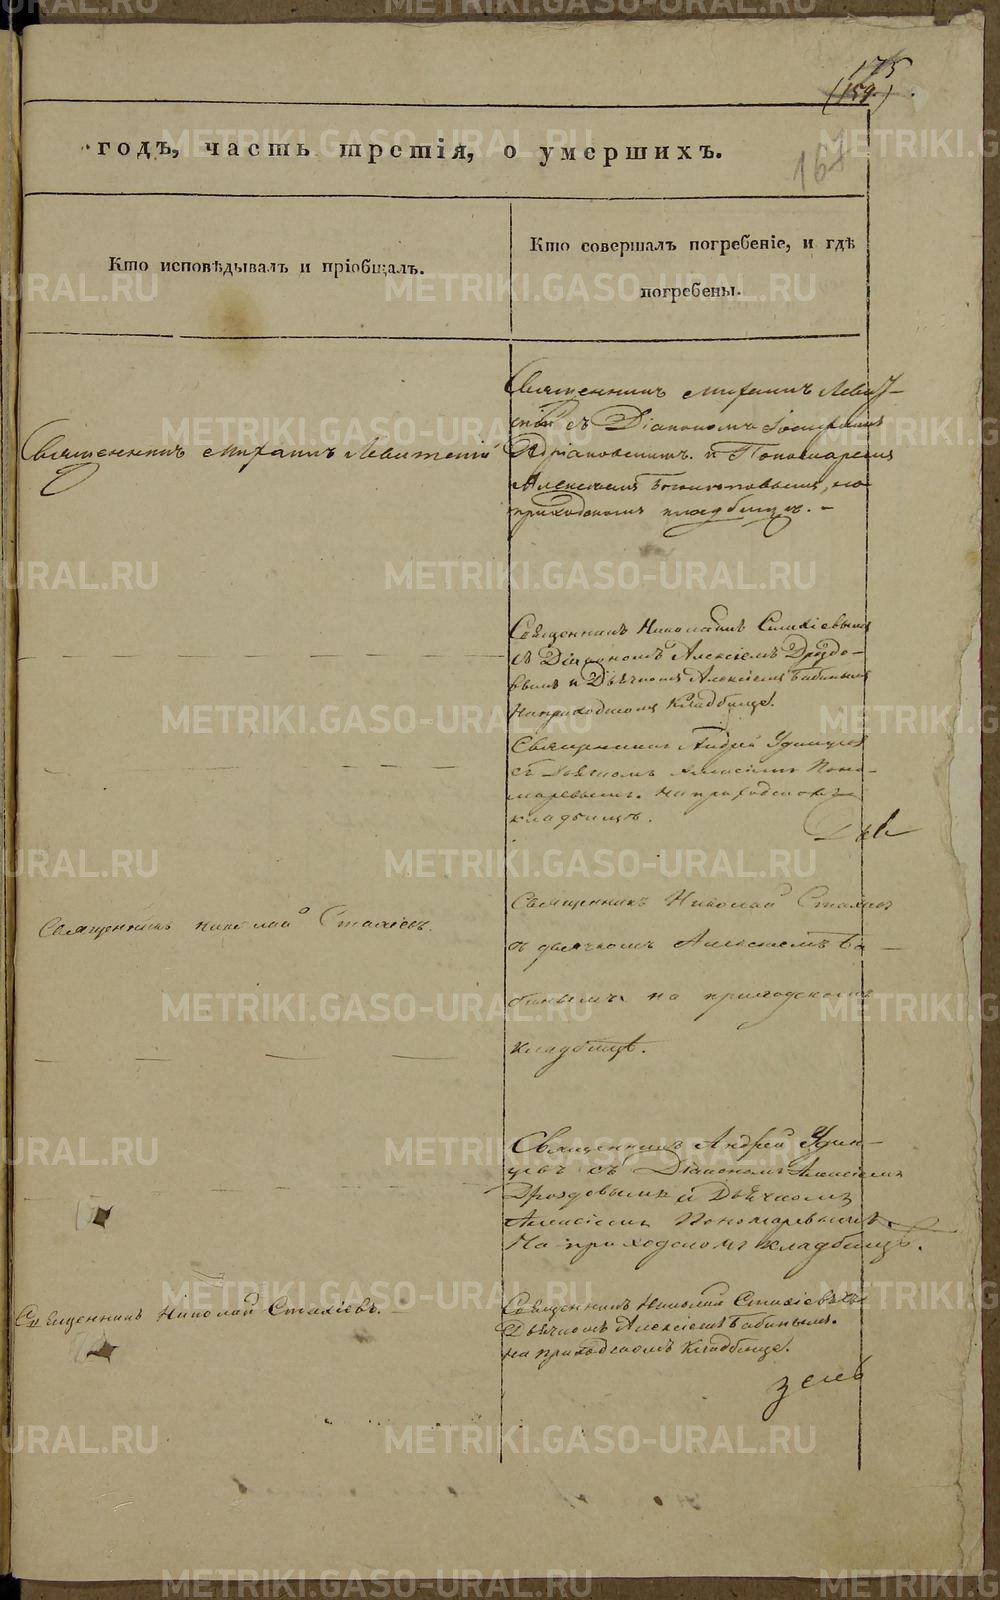 175
(159.)
167
годъ, часть третія, о умершихъ.
Кто исповѣдывалъ и пріобщалъ.
Кто совершалъ погребеніе, и гдѣ
погребены.
Священникъ Михаилъ Левитскій
Священникъ Михаилъ Левит-
скій съ Діакономъ Іосифомъ
Адріановскимъ и Пономаремъ
Алексѣемъ на
приходскомъ кладбищѣ. -
Священникъ Николай Стахіевъ
съ Діакономъ Алексіемъ Дроздо-
вымъ и Дьячкомъ Алексіемъ Бабинымъ
На приходскомъ Кладбище.
Священникъ Андрей Удинцевъ
съ Дьячкомъ Алексіемъ Поно-
маревымъ. На приходскомъ
кладбищѣ.
Священникъ Николай Стахіевъ.
Священникъ Николай Стахіевъ
съ дьячкомъ Алексіемъ Ба-
бинымъ на приходскомъ
кладбищѣ.
Священникъ Андрей Удин-
цевъ съ Діакономъ Алексіемъ
Дроздовымъ и Дьячкомъ
Алексіемъ Пономаревымъ.
На приходскомъ кладбищѣ.
Священникъ Николай Стахіевъ. -
Священникъ Николай Стахіевъ съ
Дьячкомъ Алексіемъ Бабинымъ.
на приходскомъ Кладбище.
METRIKI.GASO-URAL.RU